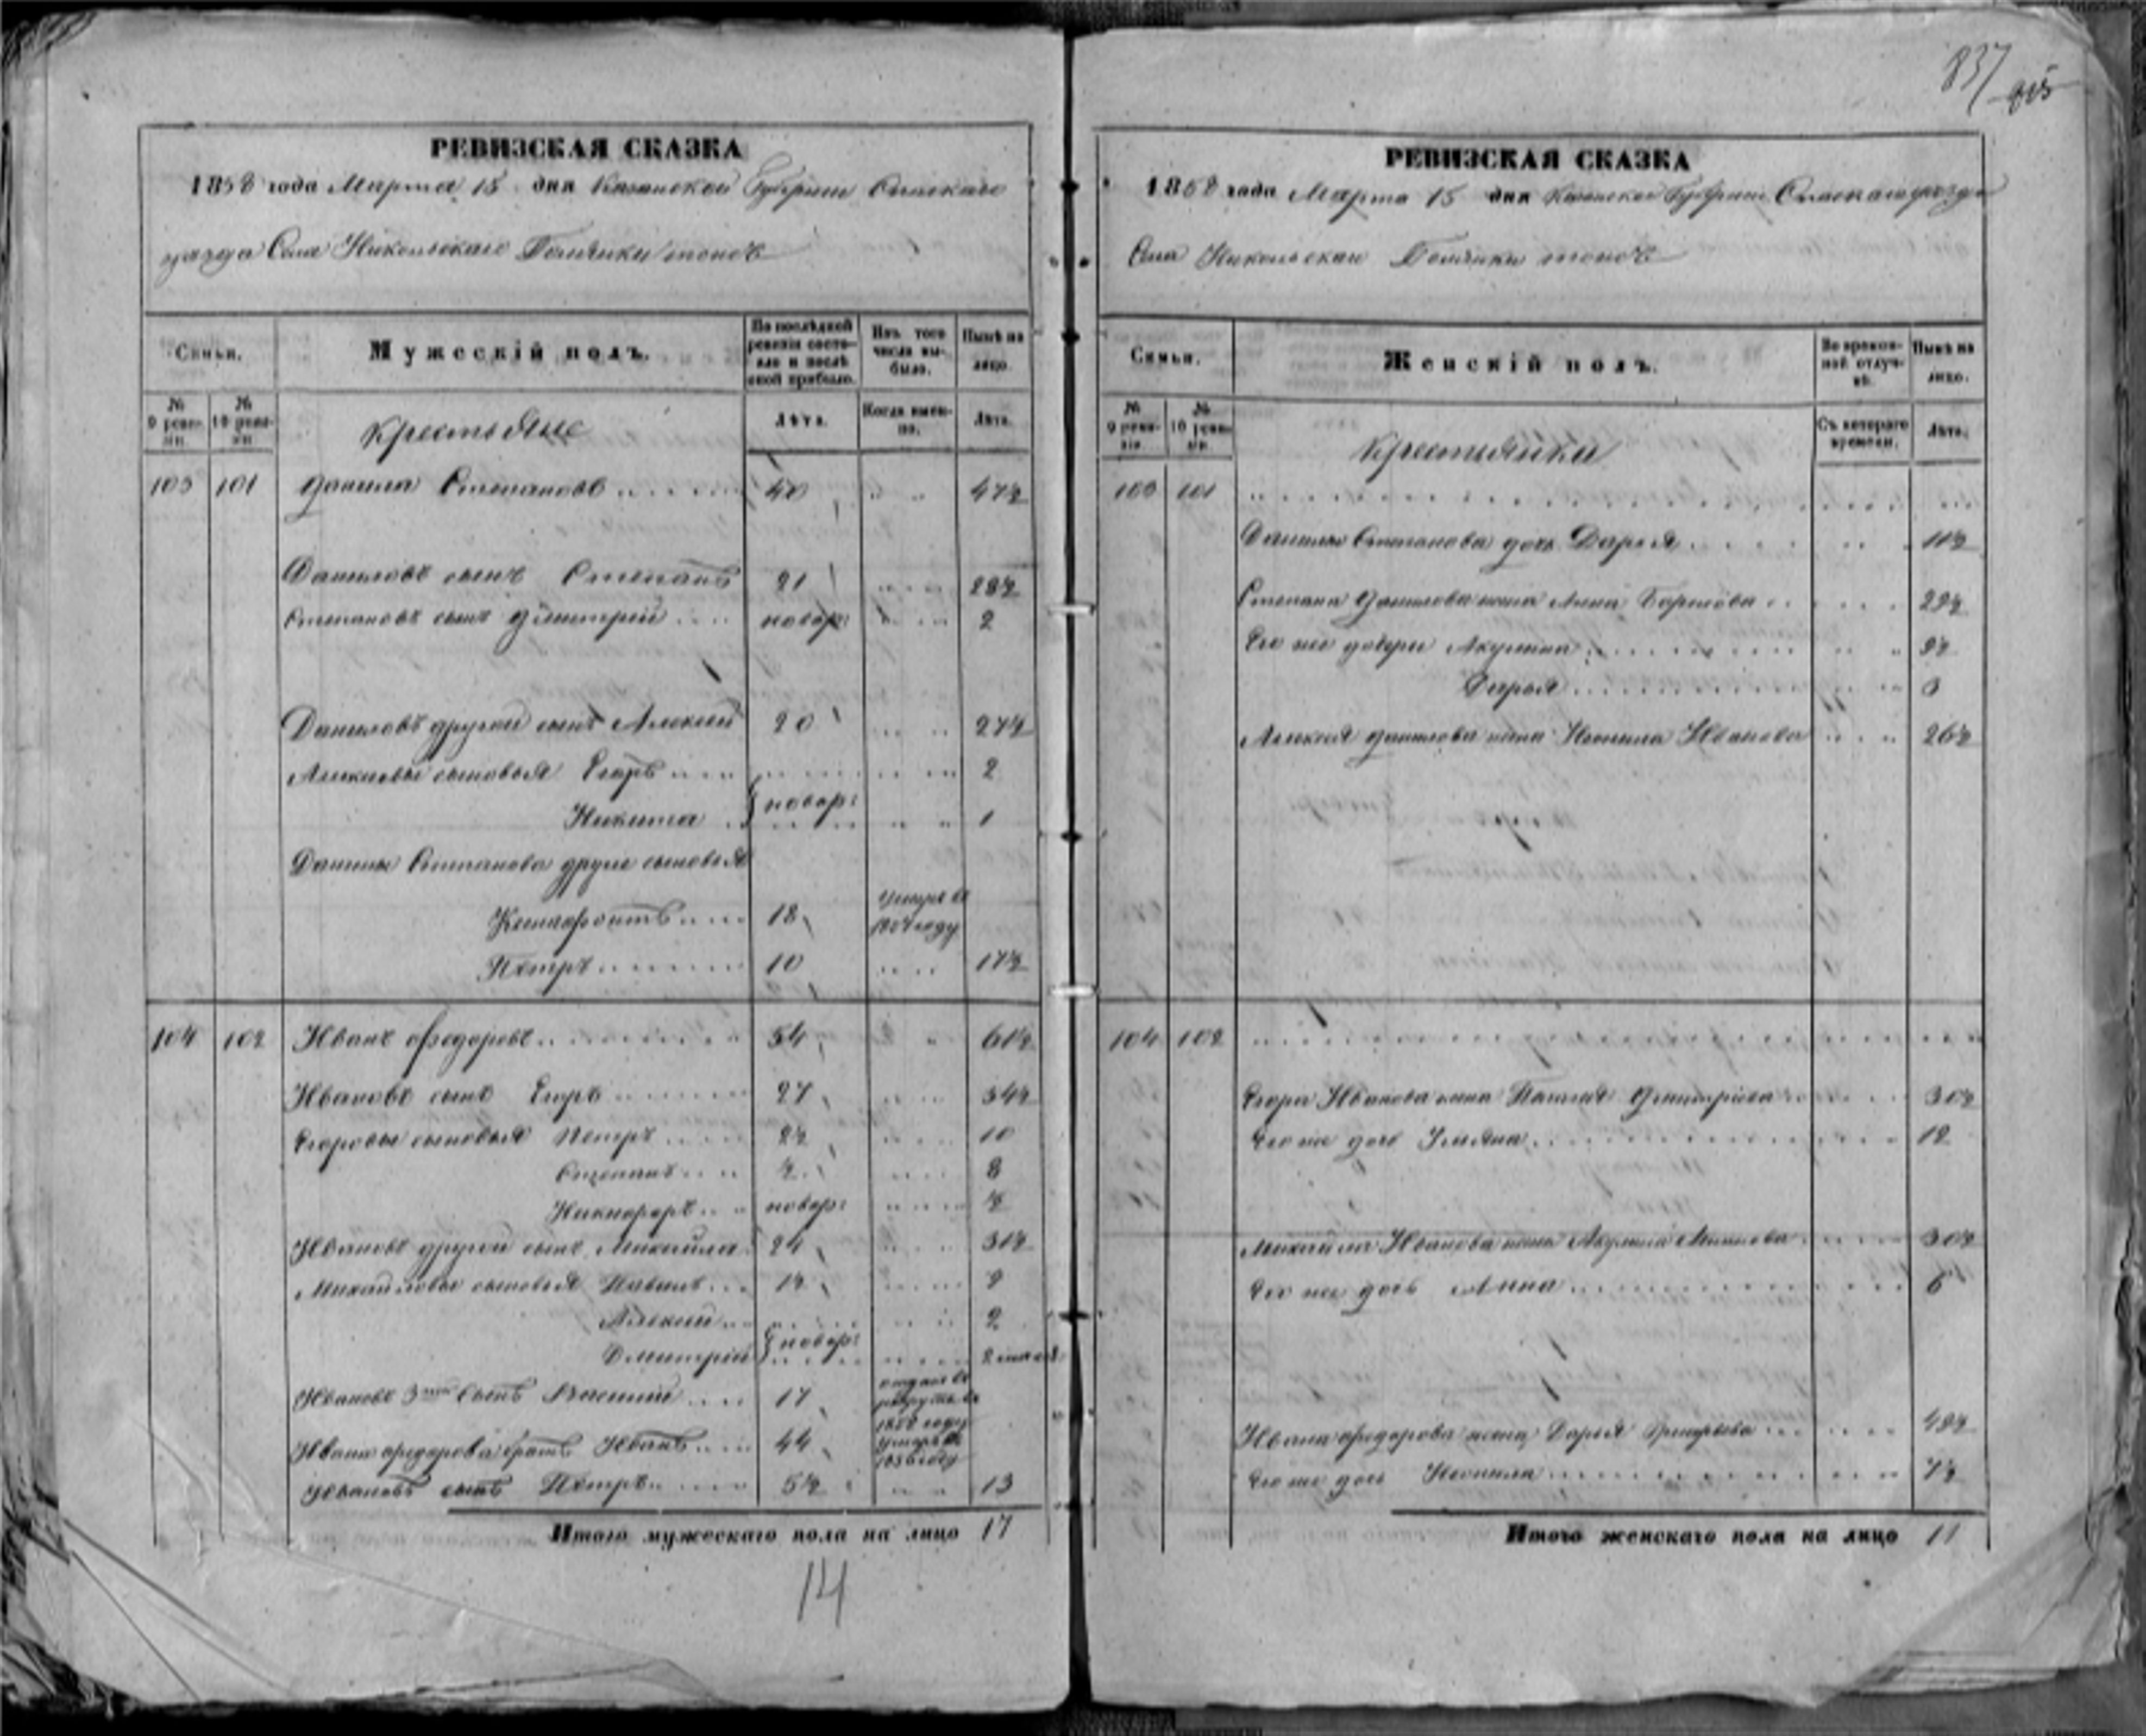 837
РЕВИЗСКАЯ СКАЗКА
1858 года Марта 15 дня Казанской Губернии Спаскаго
уезда Села Никольскаго тоножъ
Семьи.
Мужескій полъ.
По послѣдней ревизіи состояло и послѣ оной прибыло.
Изъ того числа выбыло.
Нынѣ на лицо.
№ 9 ревизіи.
№ 10 ревизіи
Крестьяне
Лѣта.
Когда именно.
Лѣта.
103 101 Данила Степановъ 40 47½
Даниловъ сынъ Степанъ 21 28½
Степановъ сынъ Дмитрій новор: 2
Даниловъ другой сынъ Алексей 20 27½
Алексеевы сыновья Егоръ 2
новор:
Никита 1
Данилы Степанова другие сыновья
18 умеръ въ 1854 году
Петръ 10 17½
104 102 Иванъ Федоровъ 54 61½
Ивановъ сынъ Егоръ 27 34½
Егоровы сыновья Петръ 2½ 10
Степанъ ½ 8
Никифоръ новор: ½
Ивановъ другой сынъ Михайла 24 31½
Михайловы сыновья Павелъ 1½ 9
Алексей 2
новор:
Дмитрій
Ивановъ 3й сынъ Василий 17 отданъ въ рекруты въ году
Ивана Федорова братъ Иванъ 44 умеръ въ 1856 году
Ивановъ сынъ Петръ 5½ 13
Итого мужескаго пола на лицо 17
14
РЕВИЗСКАЯ СКАЗКА
1858 года Марта 15 дня Казанской Губернии Спаскаго уезда
Села Никольскаго тоножъ
Семьи.
Женскій полъ.
Во временной отлучкѣ.
Нынѣ на лицо.
№ 9 ревизіи.
№ 10 ревизіи.
Крестьянки
Съ котораго времени.
Лѣта.
103 101
Данилы Степанова дочь Дарья 11½
Степана Данилова жена Анна Борисова 29½
Его же дочери Акулина 9½
Дарья
Алексея Данилова жена Неонила Иванова 26½
104 102
Егора Ивановa жена Дмитріева 30½
Его же дочь Ульяна 12
Михайла Иванова жена Акулина 30½
Его же дочь Анна 6
Ивана Федорова жена Дарья Григорьева 49½
Его же дочь Неонила 7½
Итого женскаго пола на лицо 11